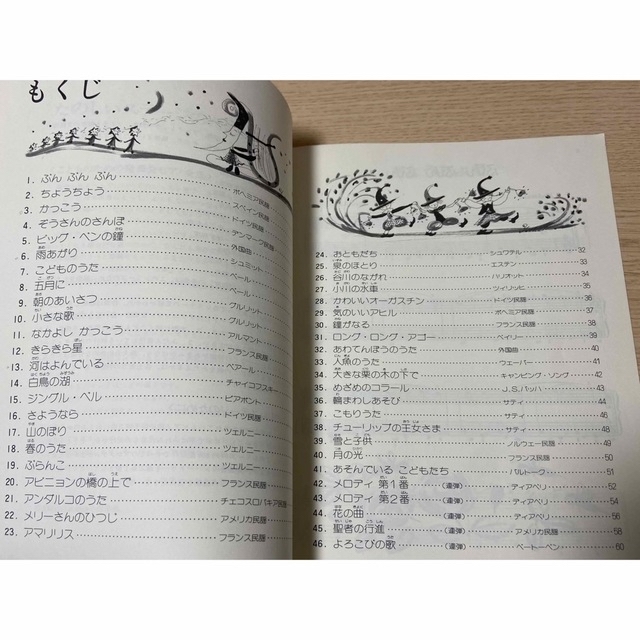 もくじ
1. ぶん ぶん ぶん ボヘミア民謡
2. ちょうちょう スペイン民謡
3. かっこう ドイツ民謡
4. ぞうさんのさんぽ デンマーク民謡
5. ビッグ・ベンの鐘 外国曲
6. 雨あがり シュミット
7. こどものうた ベール
8. 五月に ベール
9. 朝のあいさつ グルリット
10. 小さな歌 グルリット
11. なかよし かっこう アルマント
12. きらきら星 フランス民謡
13. 河はよんでいる ベアール
14. 白鳥の湖 チャイコフスキー
15. ジングル・ベル ピアポント
16. さようなら ドイツ民謡
17. 山のぼり ツェルニー
18. 春のうた ツェルニー
19. ぶらんこ ツェルニー
20. アビニョンの橋の上で フランス民謡
21. アンダルコのうた チェコスロバキア民謡
22. メリーさんのひつじ アメリカ民謡
23. アマリリス フランス民謡
24. おともだち シュワタル 32
25. 泉のほとり エステン 33
26. 谷川のながれ ハリオット 34
27. 小川の水車 ツィリッヒ 35
28. かわいいオーガスチン ドイツ民謡 36
29. 気のいいアヒル ボヘミア民謡 37
30. 鐘がなる フランス民謡 38
31. ロング・ロング・アゴー ベイリー 39
32. あわてんぼうのうた 外国曲 40
33. 人魚のうた ウェーバー 41
34. 大きな栗の木の下で キャンピング・ソング 42
35. めざめのコラール J.S.バッハ 43
36. 輪まわしあそび サティ 44
37. こもりうた サティ 46
38. チューリップの王女さま サティ 48
39. 雪と子供 ノルウェー民謡 49
40. 月の光 フランス民謡 50
41. あそんでいる こどもたち バルトーク 51
42. メロディ 第1番 (連弾) ディアベリ 52
43. メロディ 第2番 (連弾) ディアベリ 54
44. 花の曲 (連弾) ディアベリ 56
45. 聖者の行進 (連弾) アメリカ民謡 58
46. よろこびの歌 (連弾) ベートーベン 60